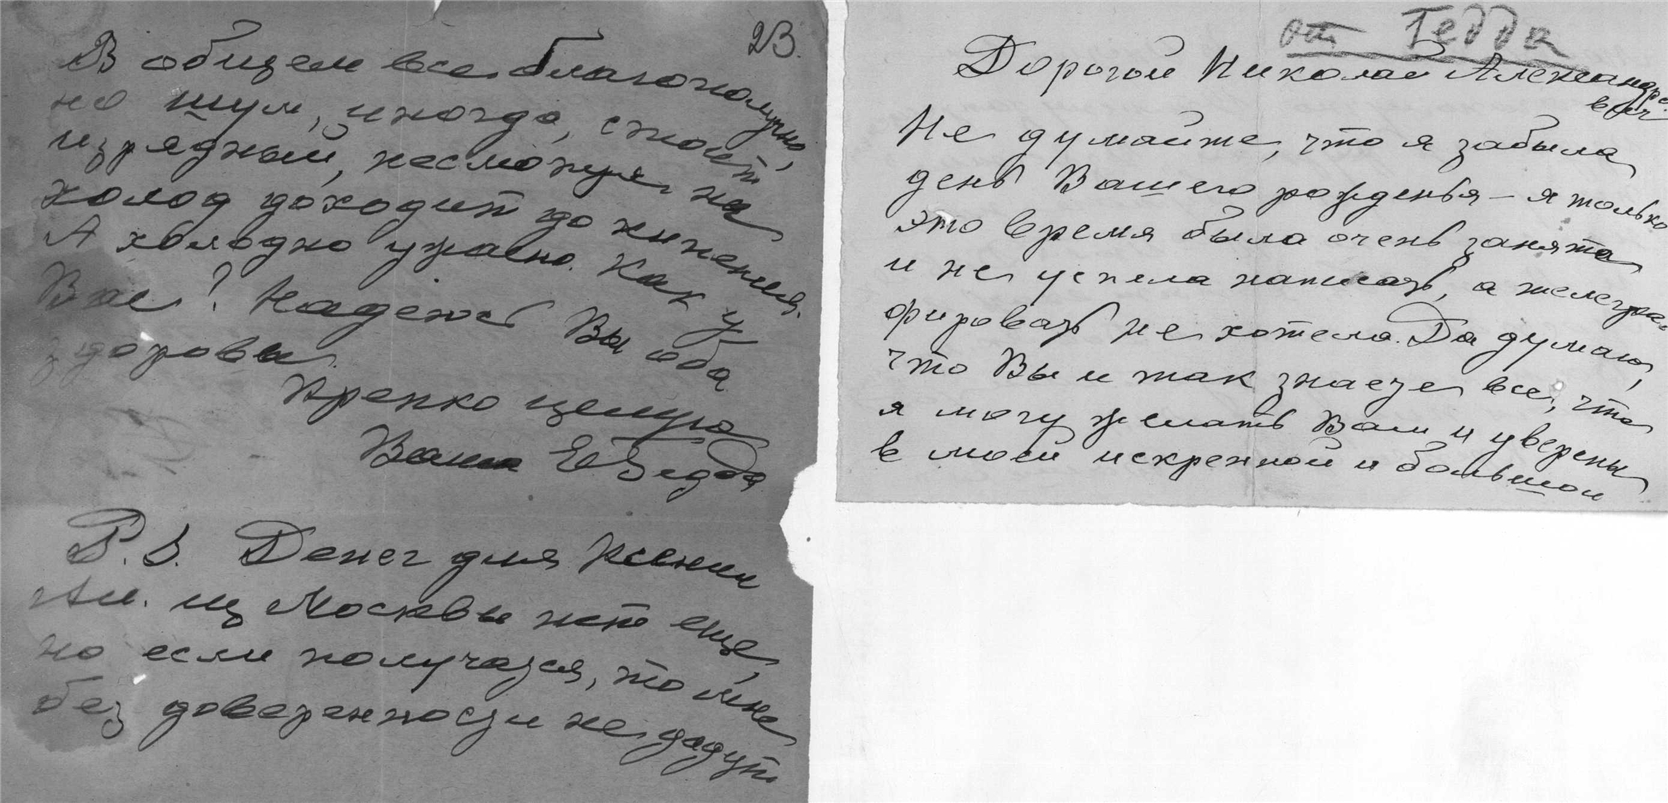 23.
В общем все благополучно,
но шум, иногда, стоит
изрядный, несмотря на
холод доходит до кипения.
А холодно ужасно. Как у
Вас? Надеюсь Вы оба
здоровы.
Крепко целую
Ваша Е Гедда
P.S. Денег для Ксении
Ал. из Москвы нет еще,
но если получатся, то мне
без доверенности не дадут.
от Гедда
Дорогой Николай Александро-
вич.
Не думайте, что я забыла
день Вашего рожденья – я только
это время была очень занята
и не успела написать, а телегра-
фировать не хотела. Да думаю,
что Вы и так знаете все, что
я могу желать Вам и уверены
в моей искренной и большой